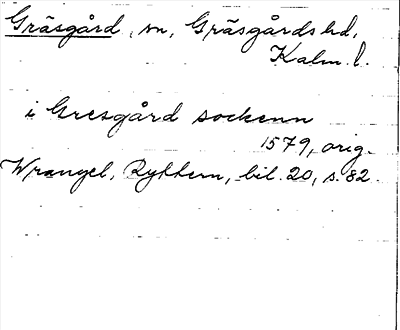 Gräsgård, sn, Gräsgårds hd,
Kalm. l.
i Gresgård sockenn
1579, orig.
Wrangel, Ryttern, bil. 20, s. 82.